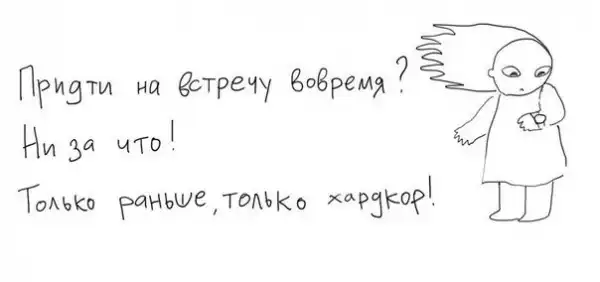 Придти на встречу вовремя?
Ни за что!
Только раньше, только хардкор!